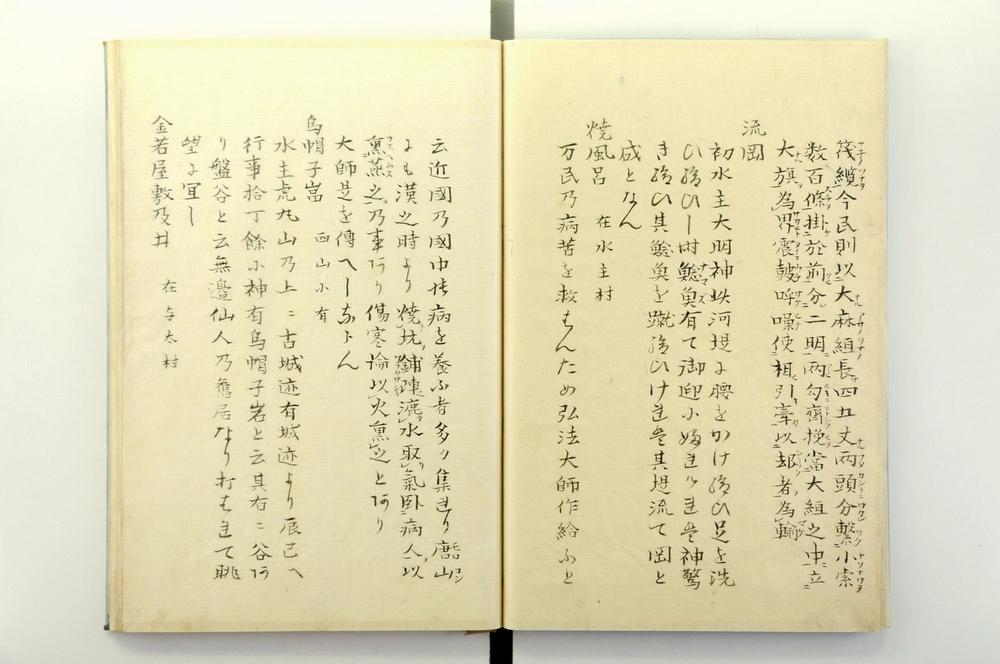 筏纜今民則以大麻絙長四五丈両頭分繫小索
数百條掛於前分二明両勾齊挽當大絙之中立
大旗為界震鼓呼噪使相引牽以却者為輸
流岡
初水主大明神此河堤に腰をかけ給ひ足を洗
ひ給ひし時鯰魚有て御迎小婦まいれは神驚
き給ひ其鯰魚を蹴給ひけれは其堤流て岡と
成となん
焼風呂 在水主村
万民乃病苦を救はんため弘法大師作給ふと
云近國乃國中皆病を養ふ者多り集まり唐山
にも漢之時より焼坑鋪陣漉水取氣臥病人以
熏蒸之乃事あり傷寒論以火熏之とあり
大師是を傳へしならん
烏帽子嵓 西山小有
水主虎丸山乃上ニ古城迹有城迹より辰巳へ
行事拾丁餘小神有烏帽子岩と云其右ニ谷あ
り盤谷と云無邊仙人乃舊居なり打はれて眺
望に冝し
金若屋敷及井 在与太村